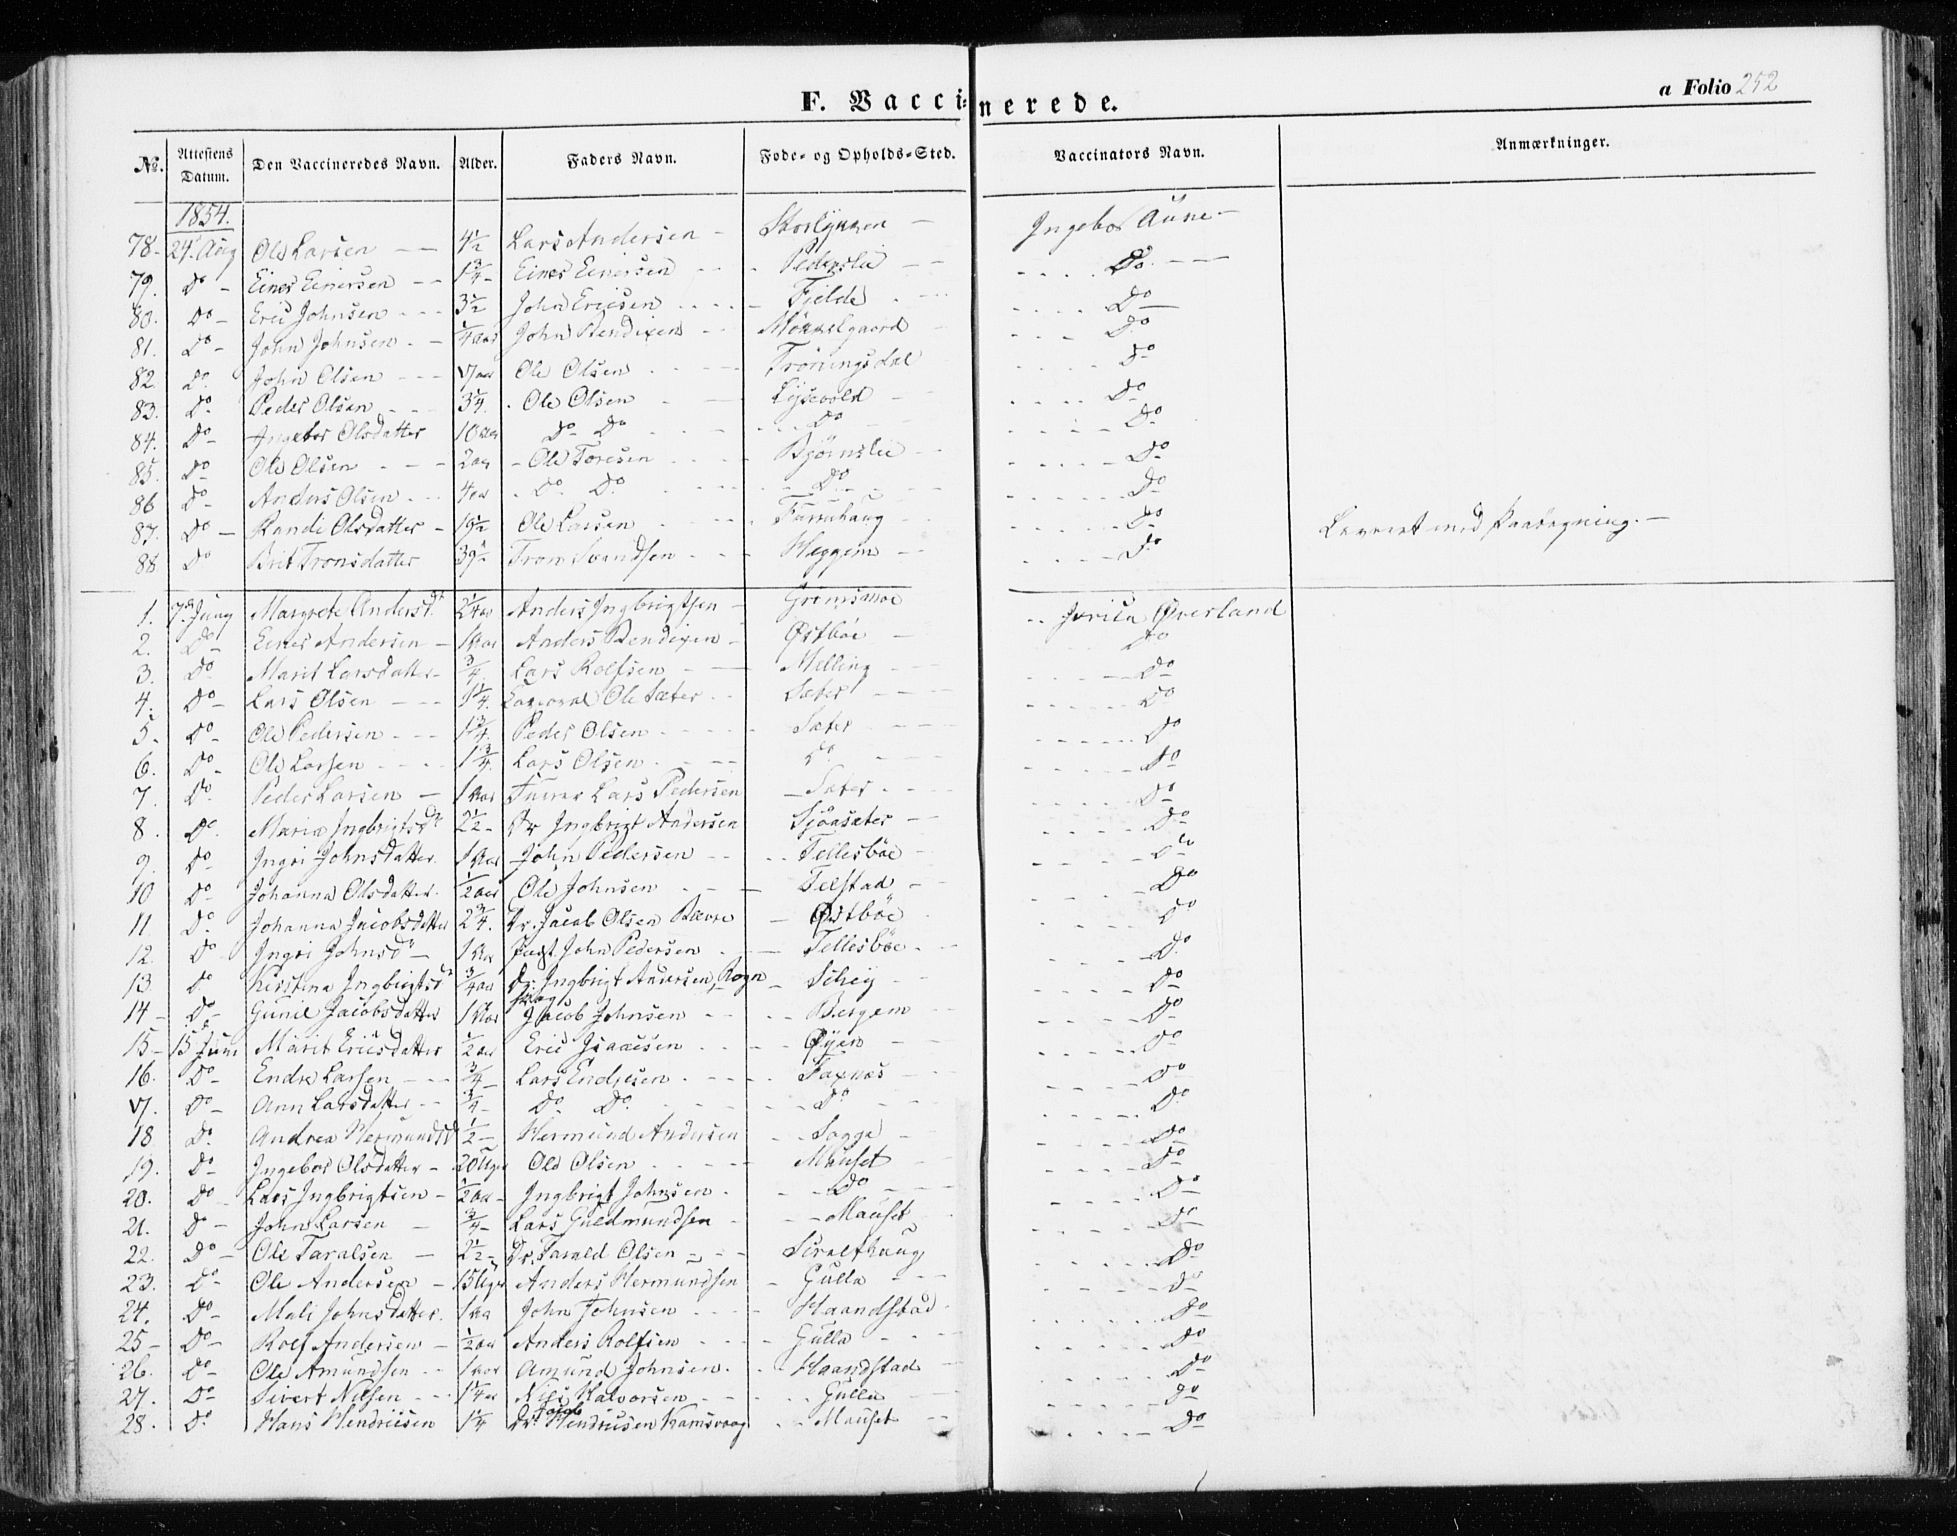 F. Vaccinerede.
a Folio 252
No. Attestens Datum. Den Vaccineredes Navn. Alder. Faders Navn. Føde- og Opholds-Sted. Vaccinators Navn. Anmærkninger.
1854.
78 - 24. Aug Ole Larsen - - 4½ Lars Andersen - - Ingebor Aune -
79. Do - Einer Einersen - - 1¾ - Einer Einersen - - - Do. -
80. Do - Eric Johnsen - - - 3½ John Ericsen - Fjelde - Do
81. Do - John Johnsen - - ¼ aar John Bendixen - - Møkkelgaard Do
82. Do. John Olsen - - - 17 aar Ole Olsen - Trøningsdal Do
83. Do. Peder Olsen 3¼. Ole Olsen - Lysevold - Do
84. Do - Ingebor Olsdatter 10 aar Do Do - Do Do
85. Do Ole Olsen - - - 2 aar - Ole Toresen - Bjørnslie - Do
86 Do - Anders Olsen - - 4 aar Do Do. Do Do
87. Do - Randi Olsdatter - 19½ Ole Larsen - Furruhaug Do
88 Do Brit Tronsdatter 39 - Tron Svendsen - - - Heggem - Do
1. 7. Juny Margrete Andersd. ¾ aar Anders Ingbrigtsen - - Øverland
2. Do - Einer Andersen - 1 aar Anders Bendixen - Østbøe - Do
3. Do. Marit Larsdatter - ¾. Lars Rolfsen - Melling - Do
4. Do - Lars Olsen - - - Ole Sæter Sæter - Do
5. Do - Ole Pedersen - - - 1¾. Peder Olsen - Sæter Do
6. Do - Ole Larsen - 1¾. Lars Olsen - - Do. Do
7. Do. Peder Larsen - 1 aar Lars Pedersen - Sæter Do
8. Do. Maria Ingbrigtsdr 2½ - Dr. Ingbrigt Andersen Sjøasæter - Do
9. Do Ingri Johnsdatter. 1 aar John Pedersen - Tellesbøe - Do
10 Do - Johanna Olsdatter ½ aar Ole Johnsen - Telstad - Do
11. Do. Johanna Jacobsdatter 2¾. Dr. Jacob Olsen Bævre - Østbøe Do
12. Do Ingri Johnsdr - 1 aar John Pedersen - Tellesbøe - Do.
13. Do Kirstina Ingbrigtsdr ¾ aar Dr. Ingbrigt Andersen, Rognskog - Schey - Do
14 - Do - Gunil Jacobsdatter 1 aar Jacob Johnsen - - Bergem - Do
15 - 15 Juni Marit Ericsdatter ½ aar Eric Isaacsen - Øyen - Do
16. Do - Endre Larsen - - - ¾ - Lars Endresen - Taxnæs - Do
17. Do - Ann Larsdatter - - ¾ - Do Do. Do. Do.
18 Do. Andrea Hermundsd ½ - Hermund Andersen - Sogge - Do
19. Do - Ingebor Olsdatter - 20 Uger Ole Olsen - Mauset - Do
20. Do Lars Ingbrigtsen - ½ aar - Ingbrigt Johnsen - Do - Do
21. Do - John Larsen - ¾ - Lars Guldmundsen - - Mauset Do
22. Do - Ole Taralsen - 2½ - Dr. Tarald Olsen - Do
23. Do Ole Andersen - 15 Uger Anders Hermundsen - Gulla - Do
24. Do - Mali Johnsdatter. 1 aar John Johnsen - Haandstad Do
25 - Do - Rolf Andersen - ½ aar Anders Rolfsen - Gulla - Do
26. Do Ole Amundsen - - 1 aar Amund Johnsen. Haandstad Do
27. Do Sivert Nilsen - - 1¼ aar Nils Halvorsen - Gulla Do
28. Do Hans Hendricsen 1¼ Dr. Jacob Hendricsen Ramsvaag - Mauset - Do